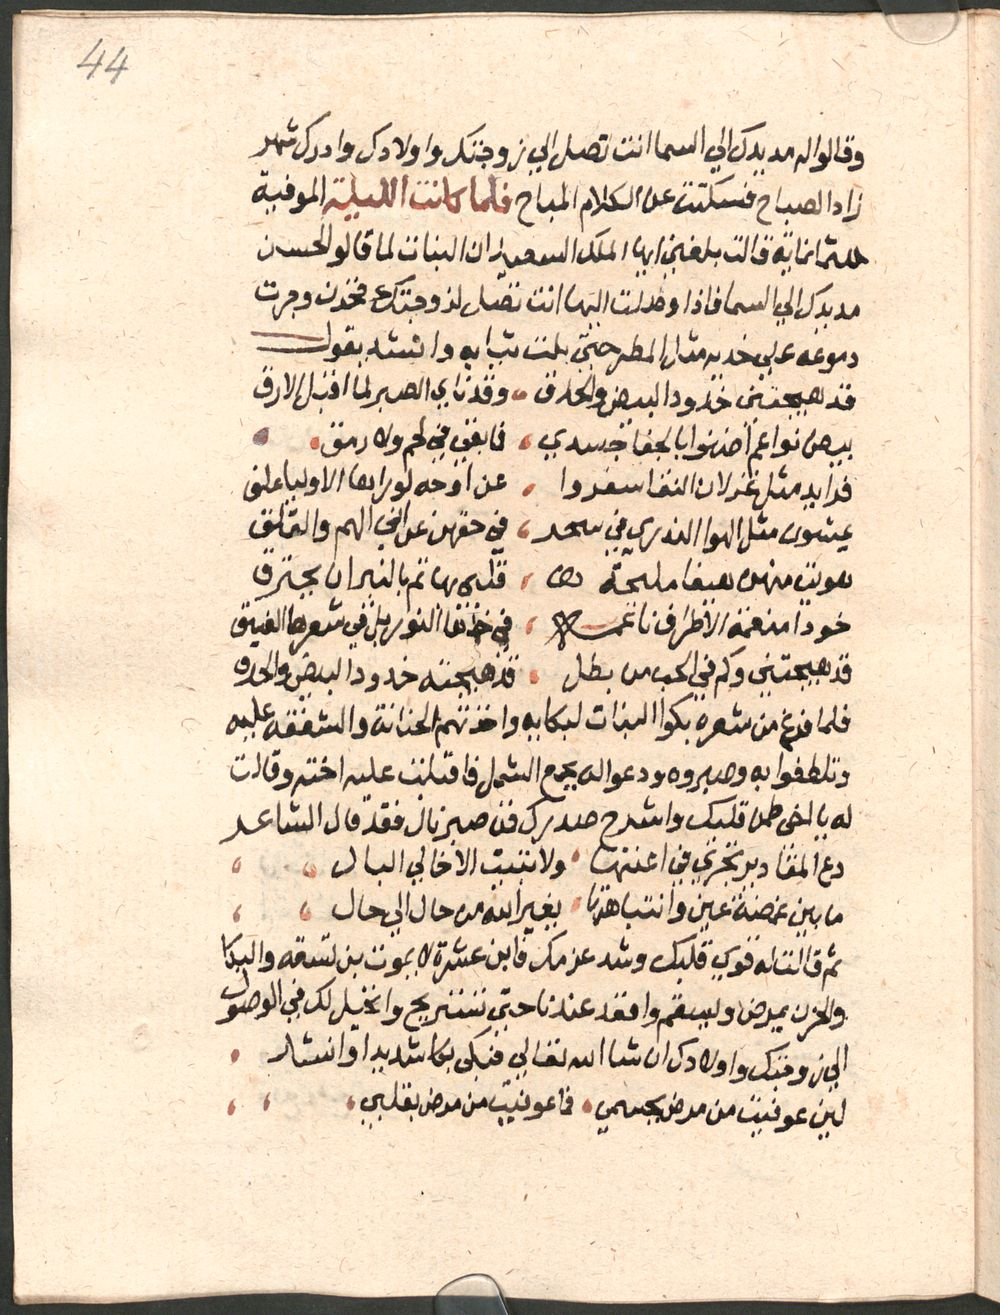 44
وقالوا له مد يدك الي السما انت تصل الي زوجتك واولادك وادرك شهر
زاد الصباح فسكتت عن الكلام المباح فلما كانت الليلة الموفية
للثمانماية قالت بلغني ايها الملك السعيد ان البنات لما قالو لحسن
مد يدك الي السما فاذا وصلت اليها انت تصل لزوجتك فحزن وجرت
دموعه علي خديه مثل المطر حتي بلت ثيابه وانشد يقول
قد هيجتني خدود البيض والحدق وقد ناي الصبر لما اقبل الارق
بيض نواعم اضنوا بالجفا جسدي فما بقي في لحم ولا رمق
فرايد مثل غزلان النقا سفروا عن اوجه لو راها الاوليا علق
يمشون مثل الهوا الندري في سحر في حقهن عراني الهم والقلق
هويت منهن هيفا مليحة قلبي بها ثم بالنيران يحترق
خودا منعمة الاطراف ناعمة في خدها النور بل في شعرها الغسق
قد هيجتني وكم في الحب من بطل قد هيجته خدود البيض والحدق
فلما فرغ من شعره بكوا البنات لبكايه واخذتهم الحنانة والشفقه عليه
وتلطفوا به وصبروه ودعوا له بجمع الشمل فاقبلت عليه اخته وقالت
له يا اخي طمن قلبك واشرح صدرك فمن صبر نال فقد قال الشاعر
دع المقادير تجري في اعنتها ولا تبيت الا خالي البال
ما بين غمضة عين وانتباهتها يغير الله من حال الي حال
ثم قالت له قوي قلبك وشد عزمك فابن عشرة لا يموت بن تسعه والبكا
والحزن يمرض ويسقم واقعد عندنا حتي تستريح وانحيل لك في الوصول
الي زوجتك واولادك ان شا الله تعالي فبكي بكا شديدا وانشد
لين عوفيت من مرض بجسمي فما عوفيت من مرض بقلبي